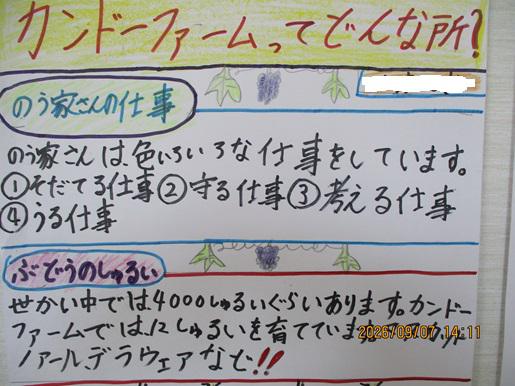 カンドーファームってどんな所?
のう家さんの仕事
のう家さんは色いろいろな仕事をしています。
①そだてる仕事②守る仕事③考える仕事
④うる仕事
ぶどうのしゅるい
せかい中では4000しゅるいぐらいあります。カンドー
ファームでは12しゅるいを育てています
ノアール、デラウェアなど!!
2026/09/07 14:11